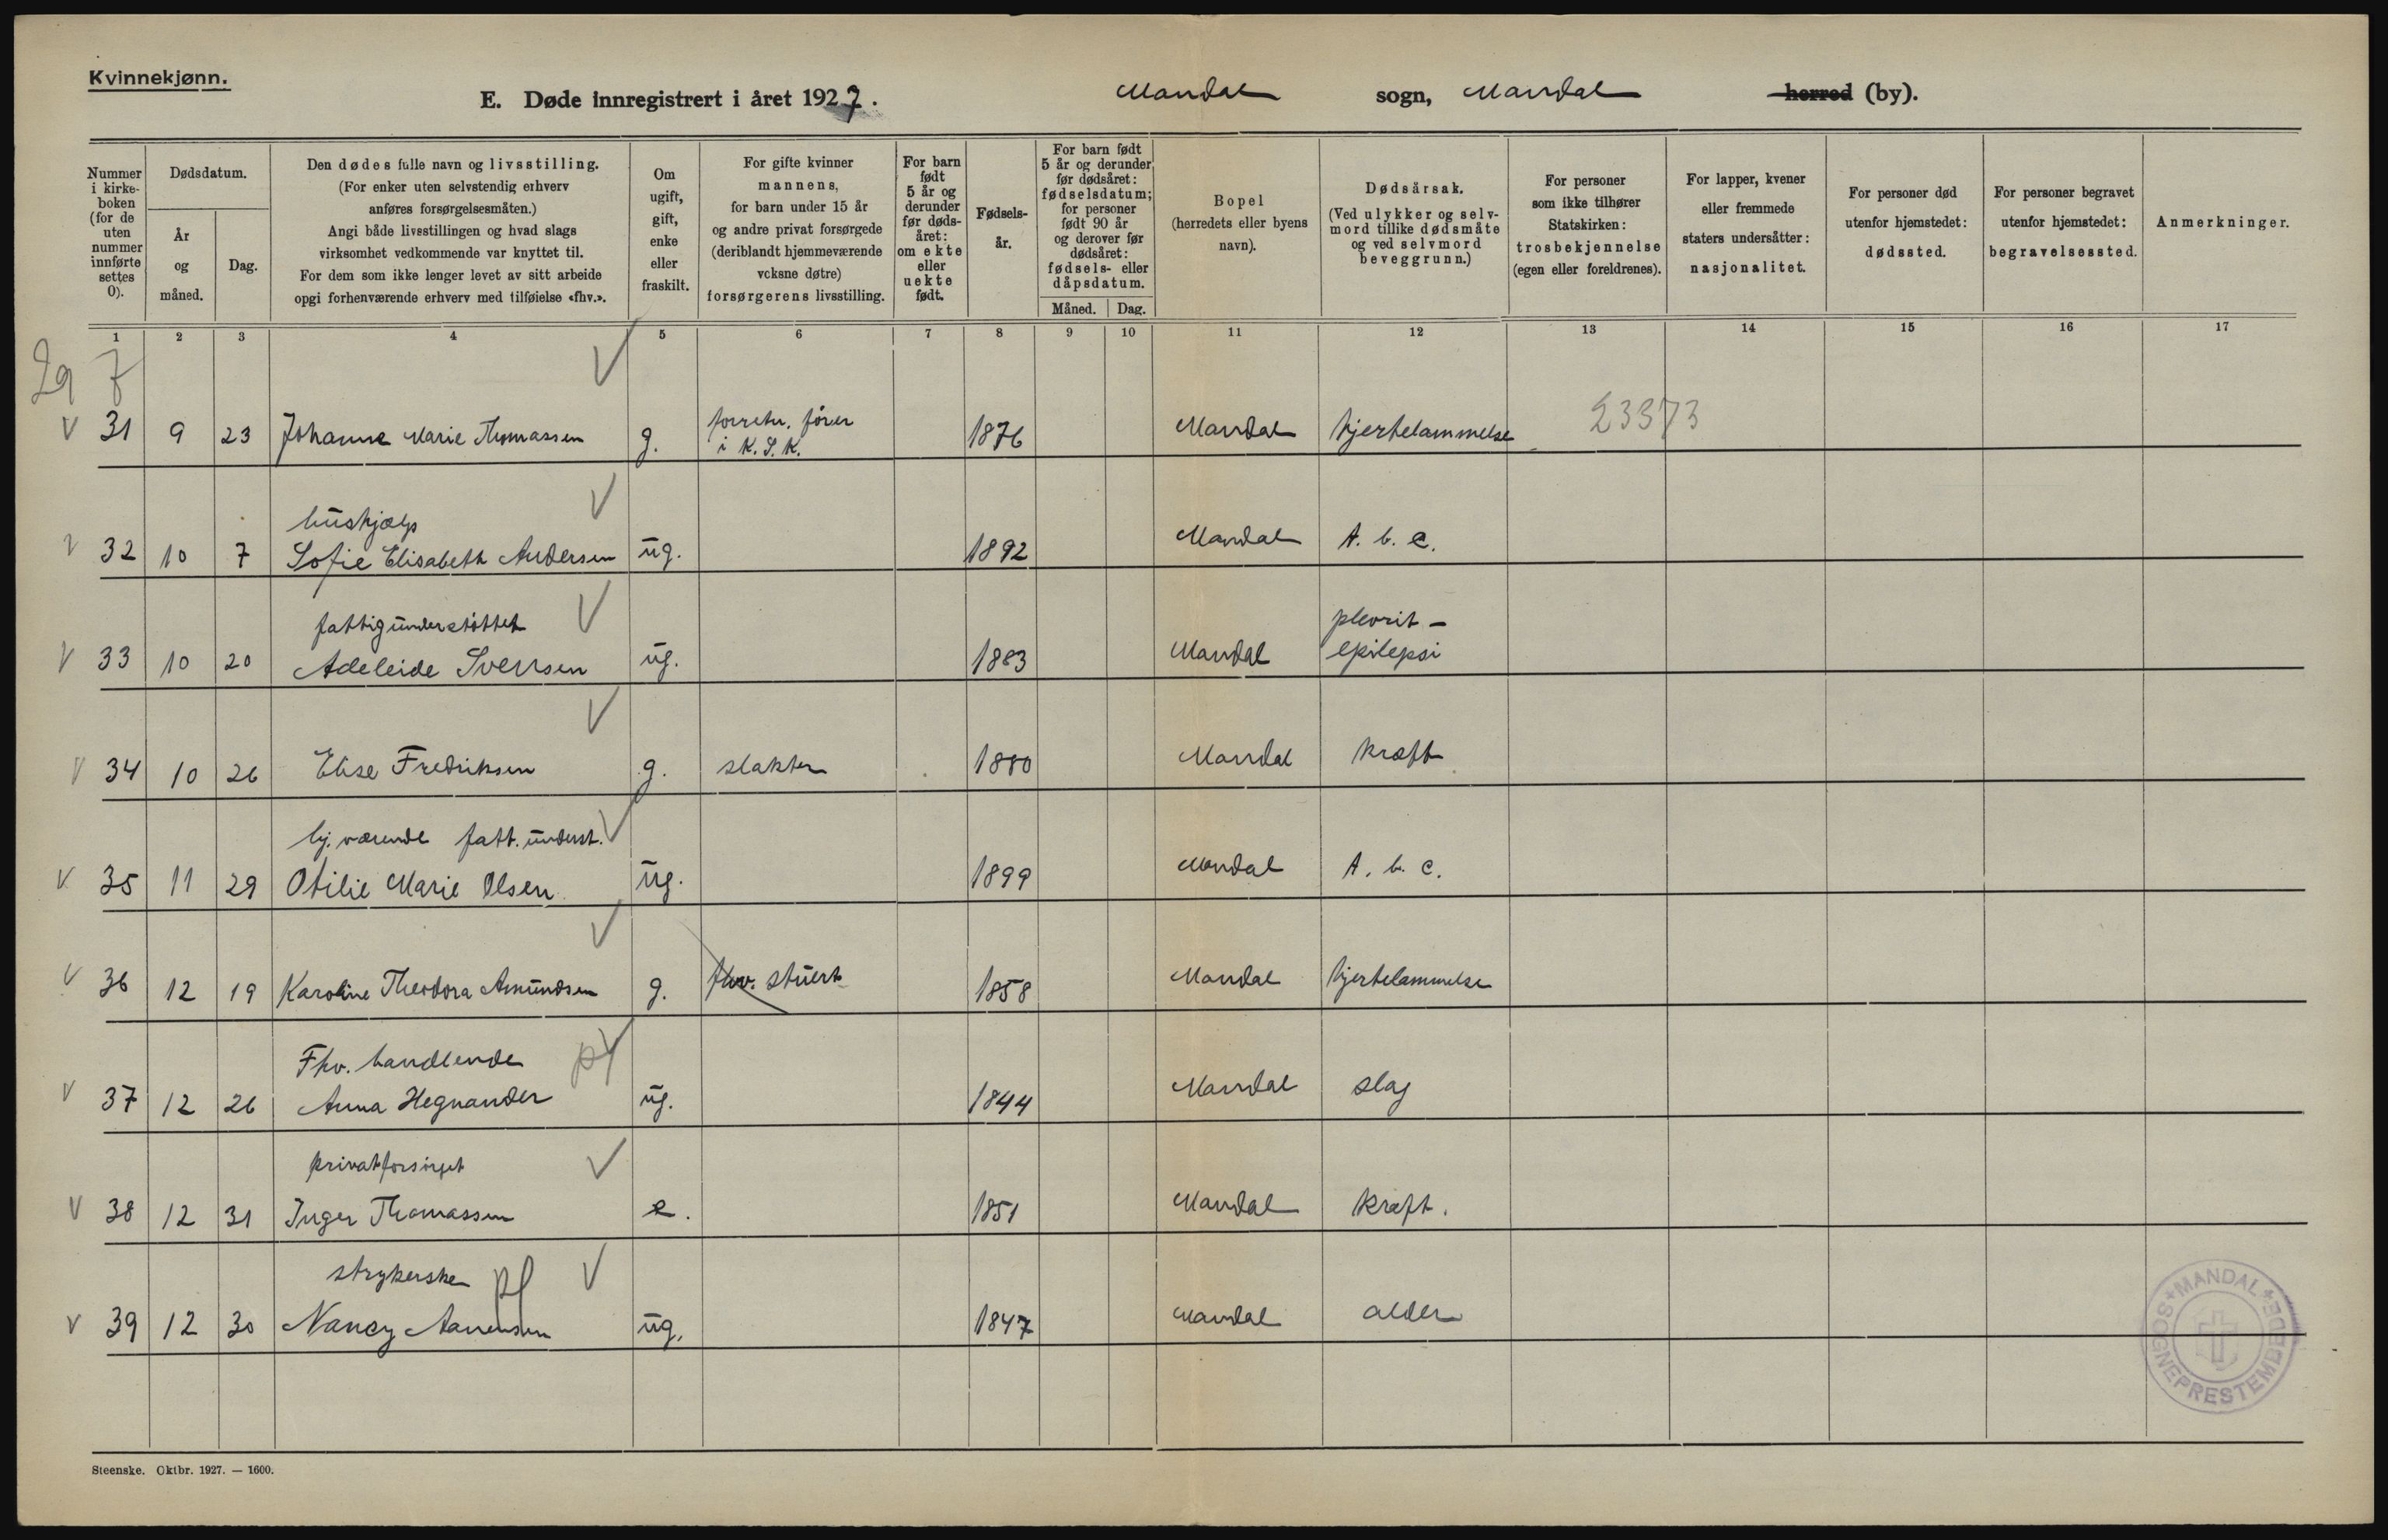 Kvinnekjønn.
E. Døde innregistrert i året 1927. Mandal sogn, Mandal herred (by).
Nummer i kirke- boken (for de uten nummer innførte settes 0).
Dødsdatum.
År og måned.
Dag.
Den dødes fulle navn og livsstilling.
(For enker uten selvstendig erhverv
anføres forsørgelsesmåten.)
Angi både livsstillingen og hvad slags
virksomhet vedkommende var knyttet til.
For dem som ikke lenger levet av sitt arbeide
opgi forhenværende erhverv med tilføielse «fhv.».
Om ugift, gift, enke eller fraskilt.
For gifte kvinner
mannens,
for barn under 15 år
og andre privat forsørgede
(deriblandt hjemmeværende
voksne døtre)
forsørgerens livsstilling.
For barn født 5 år og derunder før døds- året: om ekte eller uekte født.
Fødsels- år.
For barn født
5 år og derunder
før dødsåret:
fødselsdatum;
for personer
født 90 år
og derover før
dødsåret:
fødsels- eller
dåpsdatum.
Måned. Dag.
Bopel
(herredets eller byens
navn).
Dødsårsak.
(Ved ulykker og selv-
mord tillike dødsmåte
og ved selvmord
beveggrunn.)
For personer
som ikke tilhører
Statskirken:
trosbekjennelse
(egen eller foreldrenes).
For lapper, kvener
eller fremmede
staters undersåtter:
nasjonalitet.
For personer død
utenfor hjemstedet:
dødssted.
For personer begravet
utenfor hjemstedet:
begravelsessted.
Anmerkninger.
1 2 3 4 5 6 7 8 9 10 11 12 13 14 15 16 17
29 7
V 31 9 23 Johanne Marie Thomassen g. forretn. fører i K. S. K. 1876 Mandal hjertelammelse 23373
hushjælp
V 32 10 7 Sofie Elisabeth Andersen ug. 1892 Mandal A. b. c.
fattigunderstøttet
V 33 10 20 Adeleide Svensen ug. 1883 Mandal plevrit - epilepsi
V 34 10 26 Elise Fredriksen g. slakter 1880 Mandal kræft
hj. værende fatt. underst.
V 35 11 29 Otilie Marie Olsen ug. 1899 Mandal A. b. c.
V 36 12 19 Karoline Theodora Amundsen g. fhv. stuert 1858 Mandal hjertelammelse
Fhv. handlende
V 37 12 26 Anna Hegnander ug. 1844 Mandal slag
privatforsørget
V 38 12 31 Inger Thomassen e. 1851 Mandal kræft.
strykerske pf
V 39 12 30 Nancy Aanensen ug. 1847 Mandal alder
MANDAL SOGNEPRESTEMBEDE
Steenske. Oktbr. 1927. — 1600.